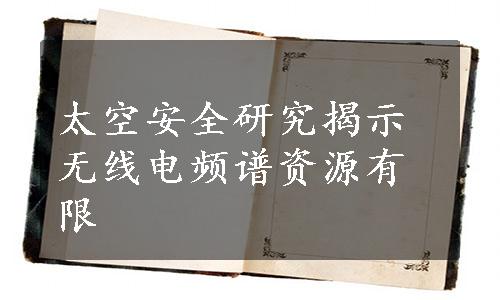 太空安全研究揭示
无线电频谱资源有
限